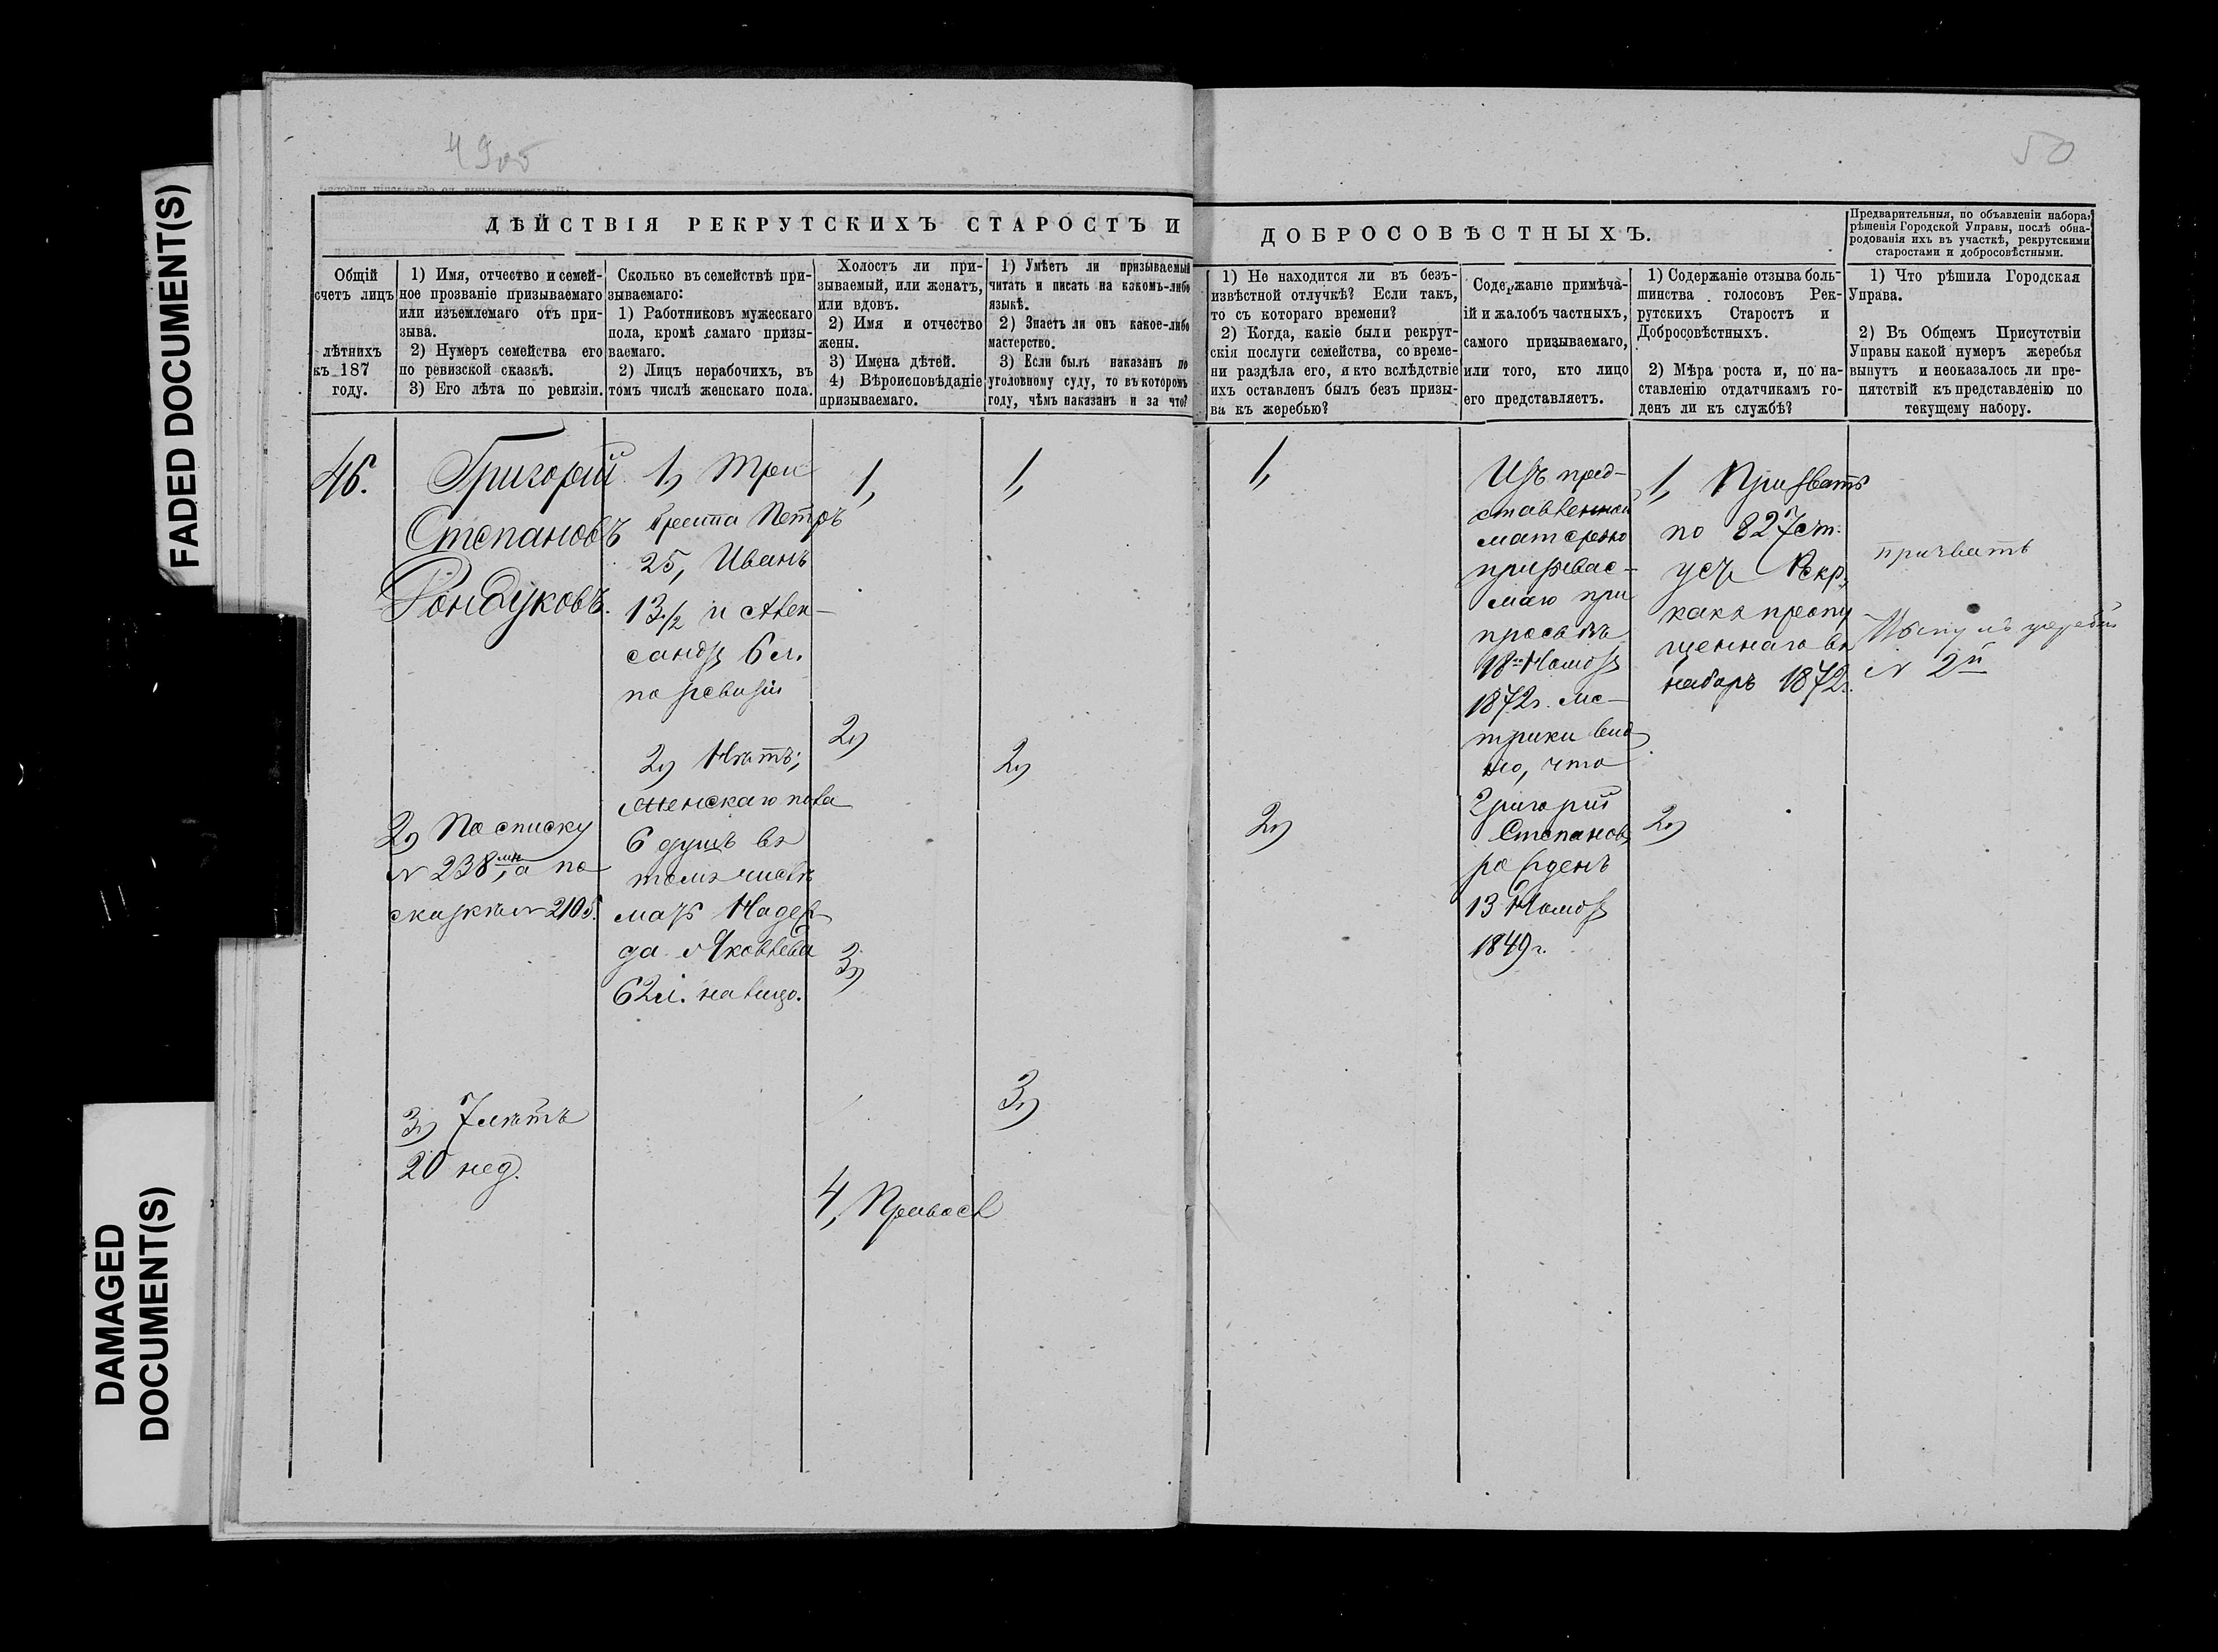 FADED DOCUMENT(S)
DAMAGED
DOCUMENT(S)
49об
50
ДѢЙСТВІЯ РЕКРУТСКИХЪ СТАРОСТЪ И
ДОБРОСОВѢСТНЫХЪ.
Предварительныя, по объявленіи набора,
рѣшенія Городской Управы, послѣ обна-
родованія ихъ въ участкѣ, рекрутскими
старостами и добросовѣстными.
Общій
счетъ лицъ
лѣтнихъ
къ 187
году.
1) Имя, отчество и семей-
ное прозваніе призываемаго
или изъемлемаго отъ при-
зыва.
2) Нумеръ семейства его
по ревизской сказкѣ.
3) Его лѣта по ревизіи.
Сколько въ семействѣ при-
зываемаго:
1) Работниковъ мужескаго
пола, кромѣ самаго призы-
ваемаго.
2) Лицъ нерабочихъ, въ
томъ числѣ женскаго пола.
Холостъ ли при-
зываемый, или женатъ,
или вдовъ.
2) Имя и отчество
жены.
3) Имена дѣтей.
4) Вѣроисповѣданіе
призываемаго.
1) Умѣетъ ли призываемый
читать и писать на какомъ-либо
языкѣ.
2) Знаетъ ли онъ какое-либо
мастерство.
3) Если былъ наказанъ по
уголовному суду, то въ которомъ
году, чѣмъ наказанъ и за что?
1) Не находится ли въ безъ-
извѣстной отлучкѣ? Если такъ,
то съ котораго времени?
2) Когда, какіе были рекрут-
скія послуги семейства, со време-
ни раздѣла его, я кто вслѣдствіе
ихъ оставленъ былъ безъ призы-
ва къ жеребью?
Содержаніе примѣча-
ій и жалобъ частныхъ,
самого призываемаго,
или того, кто лицо
его представляетъ.
1) Содержаніе отзыва боль-
шинства голосовъ Рек-
рутскихъ Старостъ и
Добросовѣстныхъ.
2) Мѣра роста и, по на-
ставленію отдатчикамъ го-
денъ ли къ службѣ?
1) Что рѣшила Городская
Управа.
2) Въ Общемъ Присутствіи
Управы какой нумеръ жеребья
вынутъ и неоказалось ли пре-
пятствій къ представленію по
текущему набору.
46.
Григорій
Степановъ
2) По списку
№ 238, а по
сказкѣ № 2105.
3) 7 лѣтъ
20 нед.
1) Три
брата Петръ
25, Иванъ
13½ и Алек-
сандръ 6 л.
по ревизіи
2) Нѣтъ;
женскаго пола
6 душъ въ
томъ числѣ
мать Надеж-
да Яковлева
62 л. на лицо.
1,
2)
3)
4, Правосл
1,
2)
3)
1,
2)
Изъ пред-
ставленной
матерью
призывае-
маго при
просьбѣ
1872г. ме-
трики вид
но, что
Григорій
Степановъ
рожденъ
1849 г.
1, Призвать
по 827 ст.
уст. Рекр,
какъ пропу
щеннаго въ
наборъ 1872г.
2)
призвать
Вынулъ жеребій
№ 2й